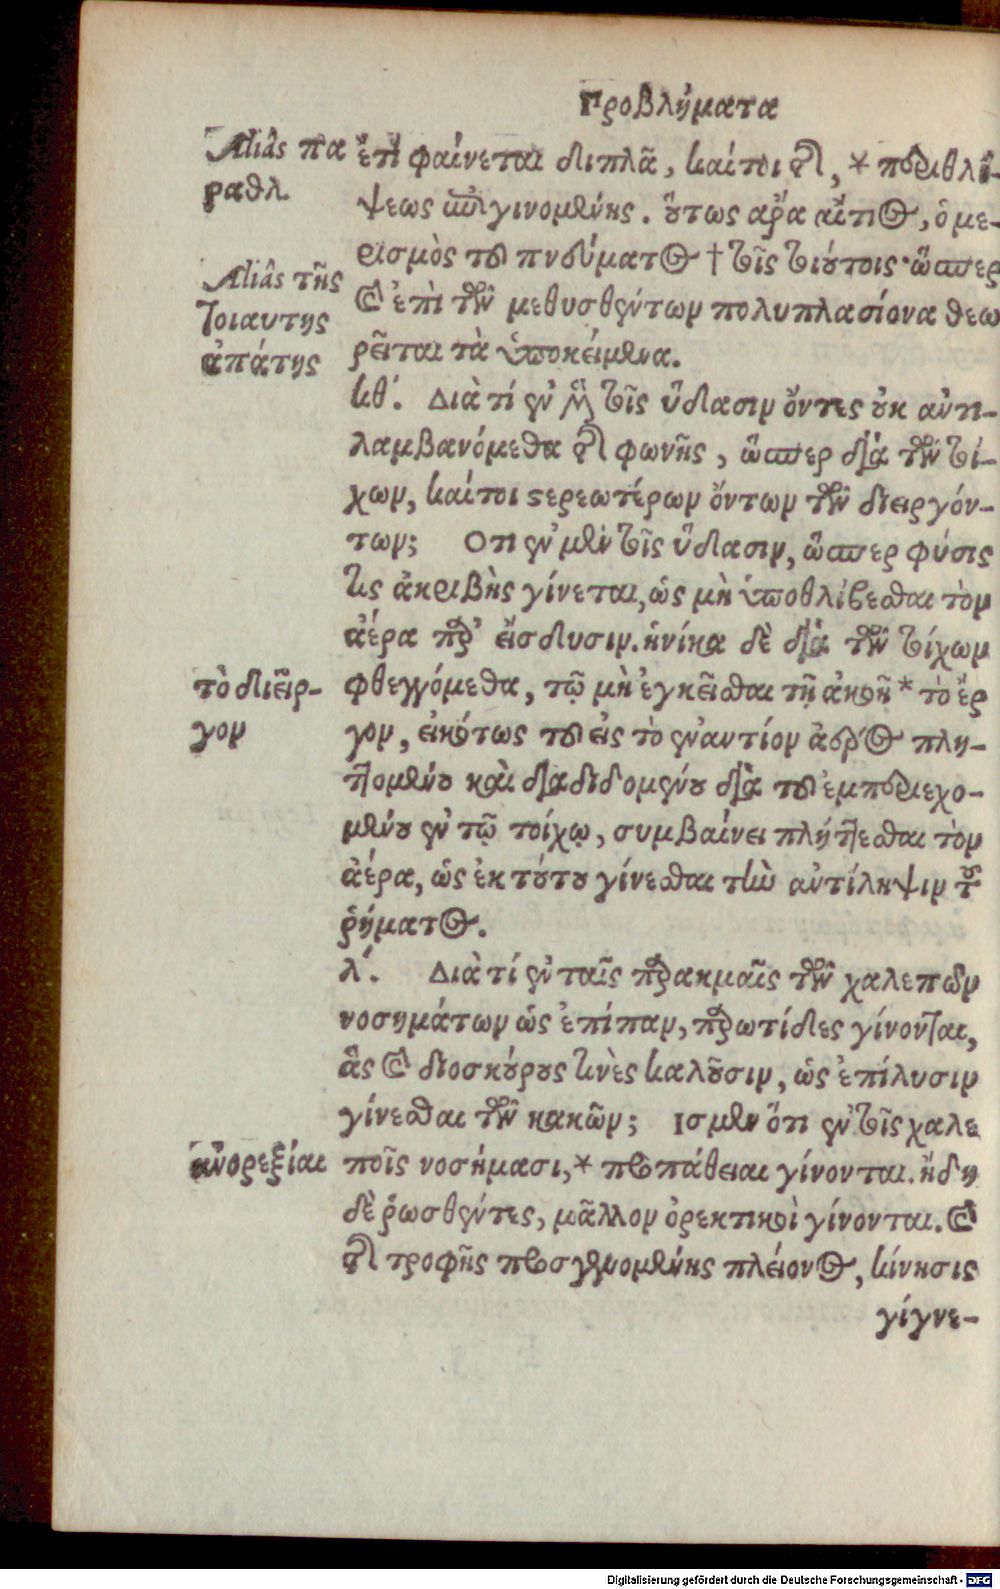 Προβλήματα
Aliâs πα
ραθλ.
ἔτι φαίνεται διπλᾶ, καίτοι τῆς, * περιθλί-
ψεως μὴ γινομένης. οὕτως ἄρα αἴτιος, ὁ με-
ρισμὸς τοῦ πνεύματος † τοῖς τοιούτοις· ὥσπερ
Aliâs τῆς
τοιαύτης
ἀπάτης
καὶ ἐπὶ τῶν μεθυσθέντων πολυπλασίονα θεω
ρεῖται τὰ ὑποκείμενα.
κθ΄. Διὰ τί ἐν μὲν τοῖς ὕδασιν ὄντες οὐκ ἀντι-
λαμβανόμεθα τῆς φωνῆς, ὥσπερ διὰ τῶν τοί-
χων, καίτοι στερεωτέρων ὄντων τῶν διειργόν-
των; Ὅτι ἐν μὲν τοῖς ὕδασιν, ὥσπερ φύσις
τις ἀκριβὴς γίνεται, ὡς μὴ ὑποθλίβεσθαι τὸν
ἀέρα πρὸς εἴσδυσιν. ἡνίκα δὲ διὰ τῶν τοίχων
τὸ διεῖρ-
γον
φθεγγόμεθα, τῷ μὴ ἐγκεῖσθαι τῇ ἀκοῇ * τὸ ἔρ
γον, εἰκότως τοῦ εἰς τὸ ἐναντίον ἀέρος πλη-
ττομένου καὶ διαδιδομένου διὰ τοῦ ἐμπεριεχο-
μένου ἐν τῷ τοίχῳ, συμβαίνει πλήττεσθαι τὸν
ἀέρα, ὡς ἐκ τούτου γίνεσθαι τὴν ἀντίληψιν τοῦ
ῥήματος.
λ΄. Διὰ τί ἐν ταῖς παρακμαῖς τῶν χαλεπῶν
νοσημάτων ὡς ἐπίπαν, παρωτίδες γίνονται,
ἃς καὶ διοσκούρους τινὲς καλοῦσιν, ὡς ἐπίλυσιν
γίνεσθαι τῶν κακῶν; Ἰσμεν ὅτι ἐν τοῖς χαλε
ἀνορεξίαι
ποῖς νοσήμασι, * προπάθειαι γίνονται. ἤδη
δὲ ῥωσθέντες, μᾶλλον ὀρεκτικοὶ γίνονται. καὶ
τῆς τροφῆς προσγενομένης πλείονος, κίνησις
γίγνε-
Digitalisierung gefördert durch die Deutsche Forschungsgemeinschaft - DFG